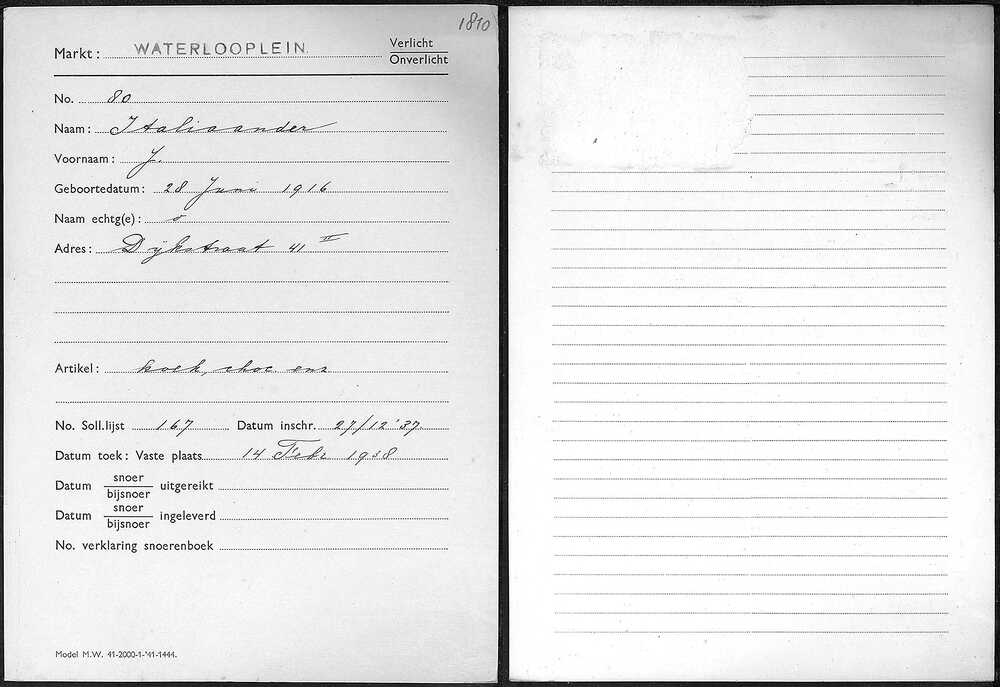 1810
Markt: WATERLOOPLEIN. Verlicht
Onverlicht
No. 80
Naam: Italiaander
Voornaam: J.
Geboortedatum: 28 Juni 1916
Naam echtg(e):
Adres: Dijkstraat 41 II
Artikel: koek, choc enz
No. Soll.lijst 167 Datum inschr. 27/12 '37.
Datum toek: Vaste plaats 14 Febr 1938
Datum snoer uitgereikt
bijsnoer
Datum snoer ingeleverd
bijsnoer
No. verklaring snoerenboek
Model M.W. 41-2000-1-'41-1444.